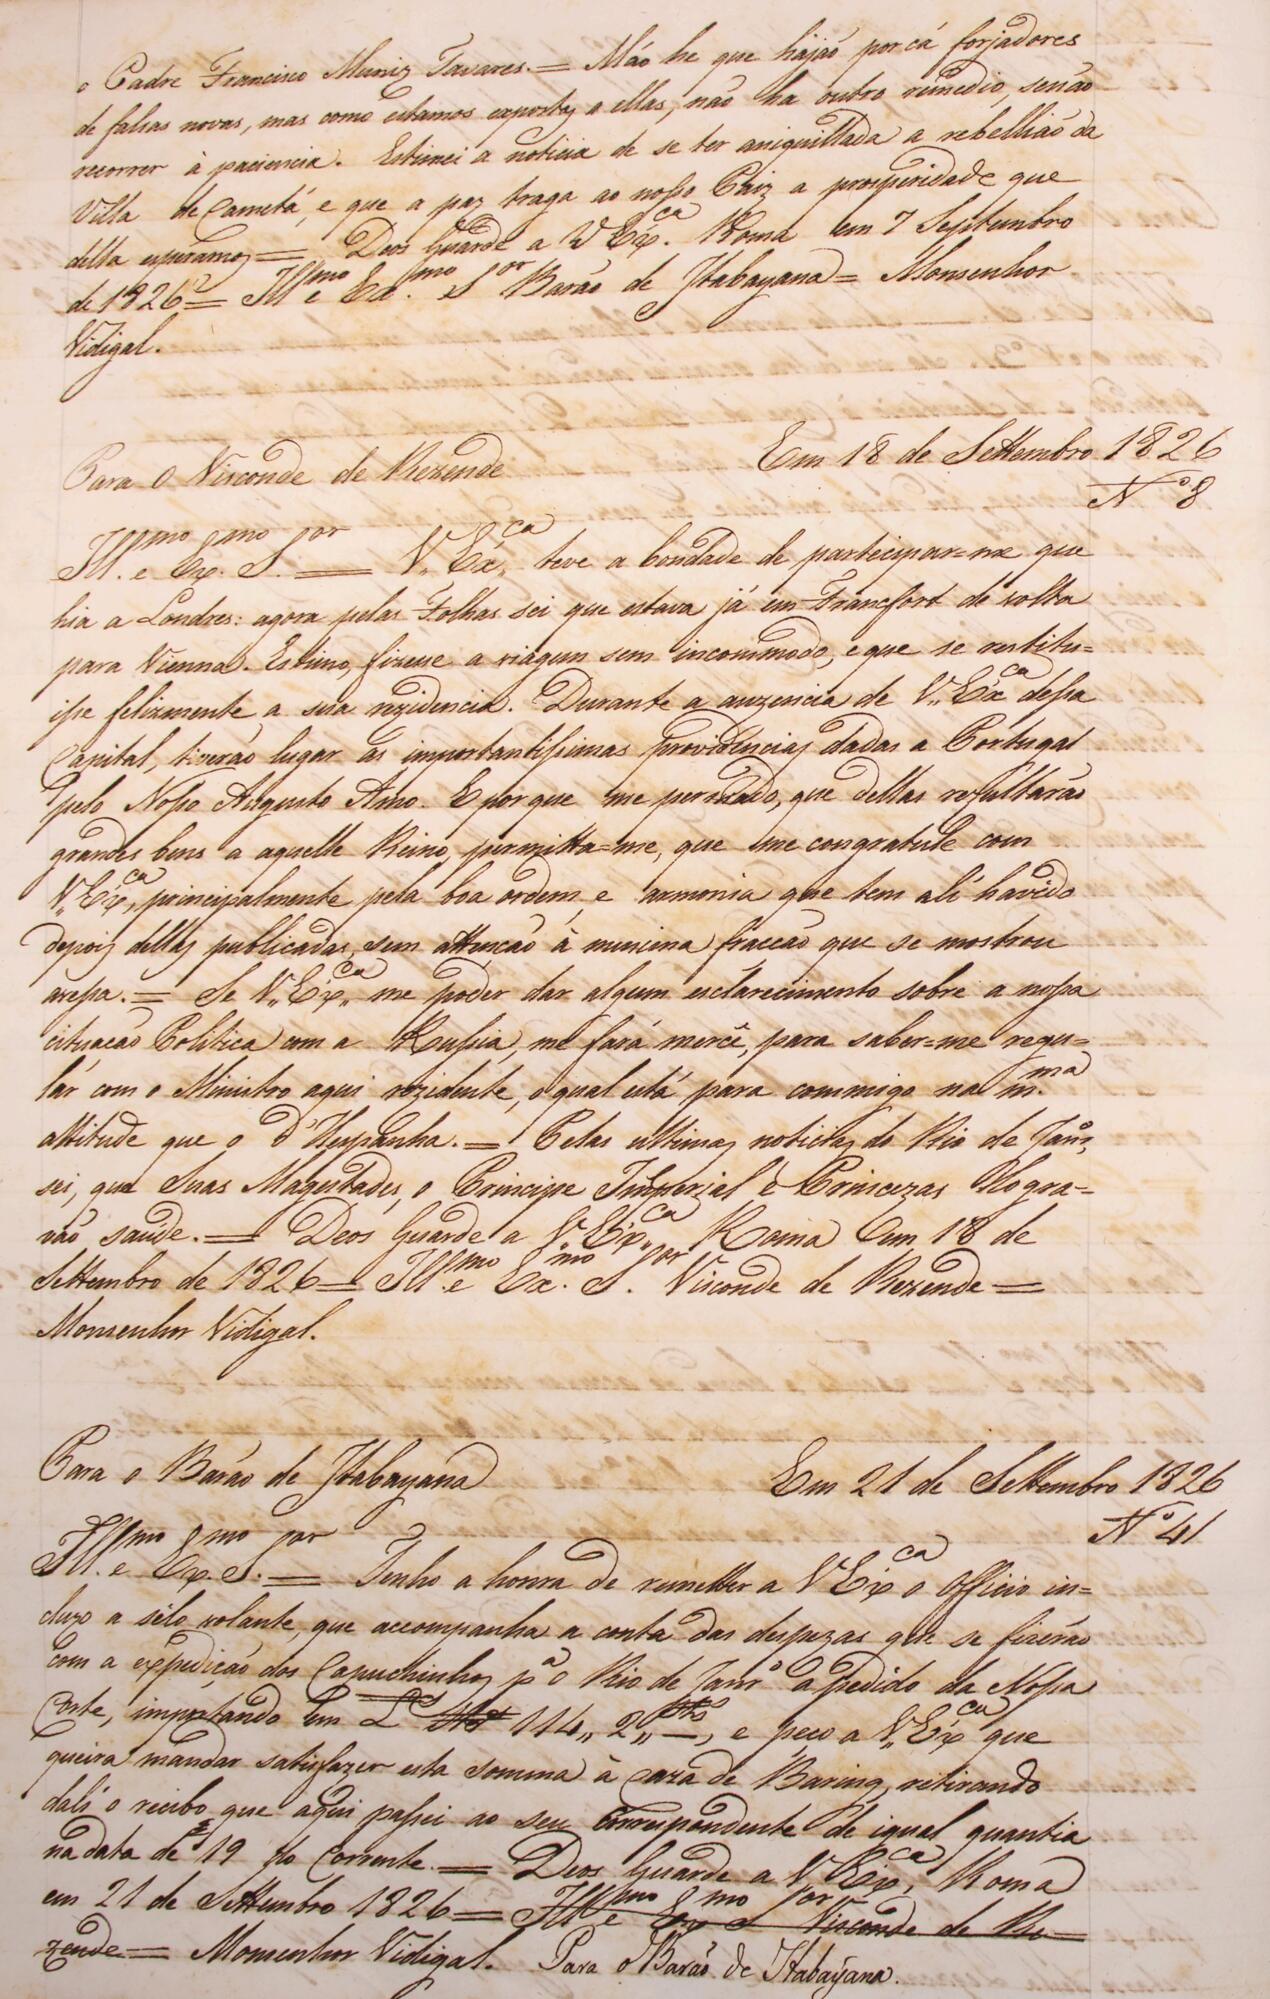 o Padre Francisco Muniz Tavares. = Máo he que hájaó por cá forjadores
de falsas novas, mas como estamos expostos a ellas, não ha outro remedio, senão
recorrer à paciencia. Estimei a noticia de se ter aniquillada a rebellião da
Villa de Cametá, e que a paz traga ao nosso Paiz a prosperidade que
della esperamos = Deos Guarde a V Exca. Roma em 7 Septembro
de 1826 = Illmo e Exmo. Sor Barão de Itabayana = Monsenhor
Vidigal.
Para O Visconde de Rezende Em 18 de Settembro 1826
No 8
Illmo. e Exmo. Sor. = V. Exca. teve a bondade de participar=me que
hia a Londres: agora pelas Folhas sei que estava já em Francfort de volta
para Vienna. Estimo, fizesse a viagem sem incommodo, e que se restitu=
isse felizmente a sua rezidencia. Durante a auzencia de V. Exca dessa
Capital, tiverão lugar as importantissimas providencias dadas a Portugal
pelo Nosso Augusto Amo. E porque me persuado, que dellas resultarão
grandes bens a aquelle Reino, permitta=me, que me congratule com
V. Exca, principalmente pela boa ordem, e armonia que tem ali havido
depois dellas publicadas, sem attencão à minima fraccão que se mostrou
avessa. = Se V. Exca. me poder dar algum esclarecimento sobre a nossa
cituacão Politica com a Russia, me fará mercê, para saber=me regu=
lár com o Ministro aqui rezidente, o qual está para commigo na mma.
attitude que o d'Hespanha. = Pelas ultimas noticias do Rio de Janro,
sei, que Suas Magestades, o Principe Imperial e Princezas Logra=
vão saude. = Deos Guarde a V. Exca. Roma Em 18 de
Settembro de 1826 = Illmo. e Exmo. Sor. Visconde de Rezende =
Monsenhor Vidigal.
Para o Barão de Itabayana Em 21 de Settembro 1826
No 41
Illmo. e Exmo. Sor. = Tenho a honra de remetter a V Exca o Officio in=
cluzo a sélo volante, que accompanha a conta das despezas que se fizerão
com a expedição dos Capuchinhos pa o Rio de Janro a pedido da Nossa
Corte, importando em L 114,, 2,, —, e peço a V. Exca que
queira mandar satisfazer esta somma à Caza de Baring, retirando
dali o recibo que aqui passei ao seu Correspondente de igual quantia
na data de 19 do Corrente. = Deos Guarde a V. Exca, Roma
em 21 de Settembro 1826 = Illmo e Exmo Sor Visconde de Re=
zende = Monsenhor Vidigal. Para o Barão de Itabayana.